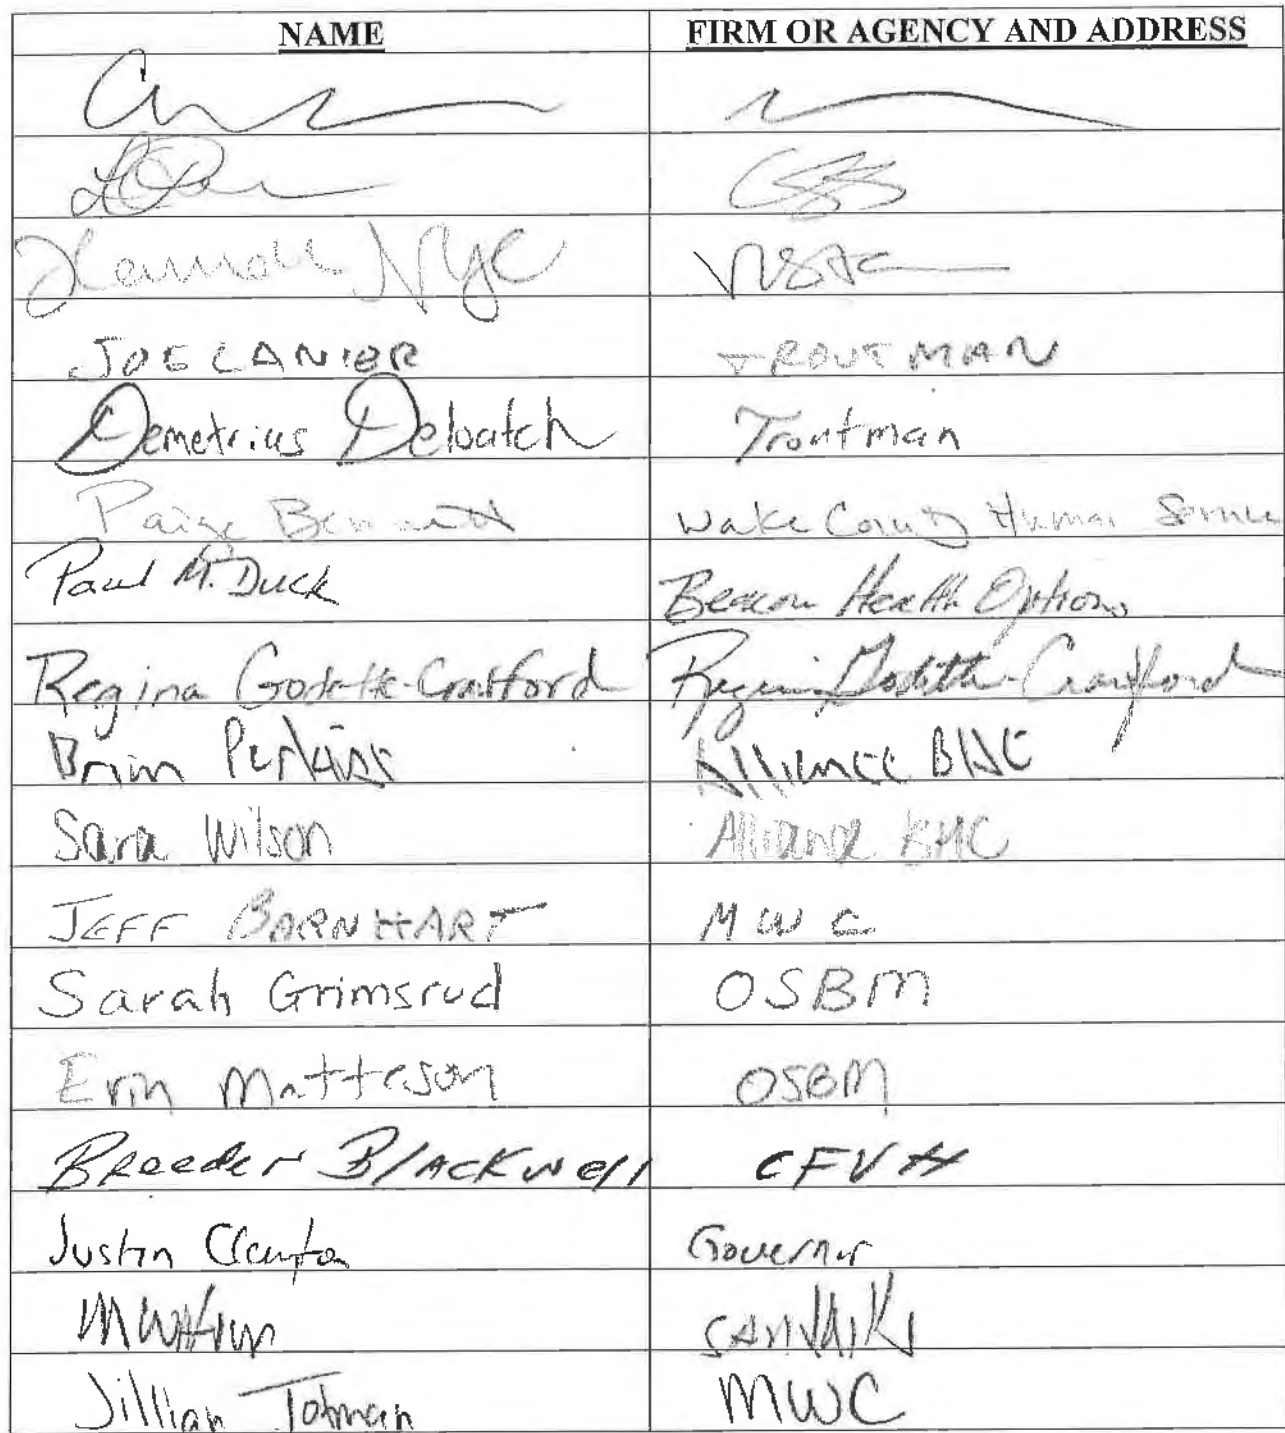 NAME FIRM OR AGENCY AND ADDRESS
NYC
JOE LANIER TROUTMAN
Demetrius Deloatch Troutman
Paige Bennett Wake County Human Service
Paul M. Duck Beacon Health Options
Regina Godette-Crawford Regina Godette-Crawford
Brian Perkins Alliance BHC
Sara Wilson Alliance BHC
JEFF BARNHART MWC
Sarah Grimsrud OSBM
Erin Matteson OSBM
Breeden Blackwell CFVH
Justin Governor
Jillian Totman MWC